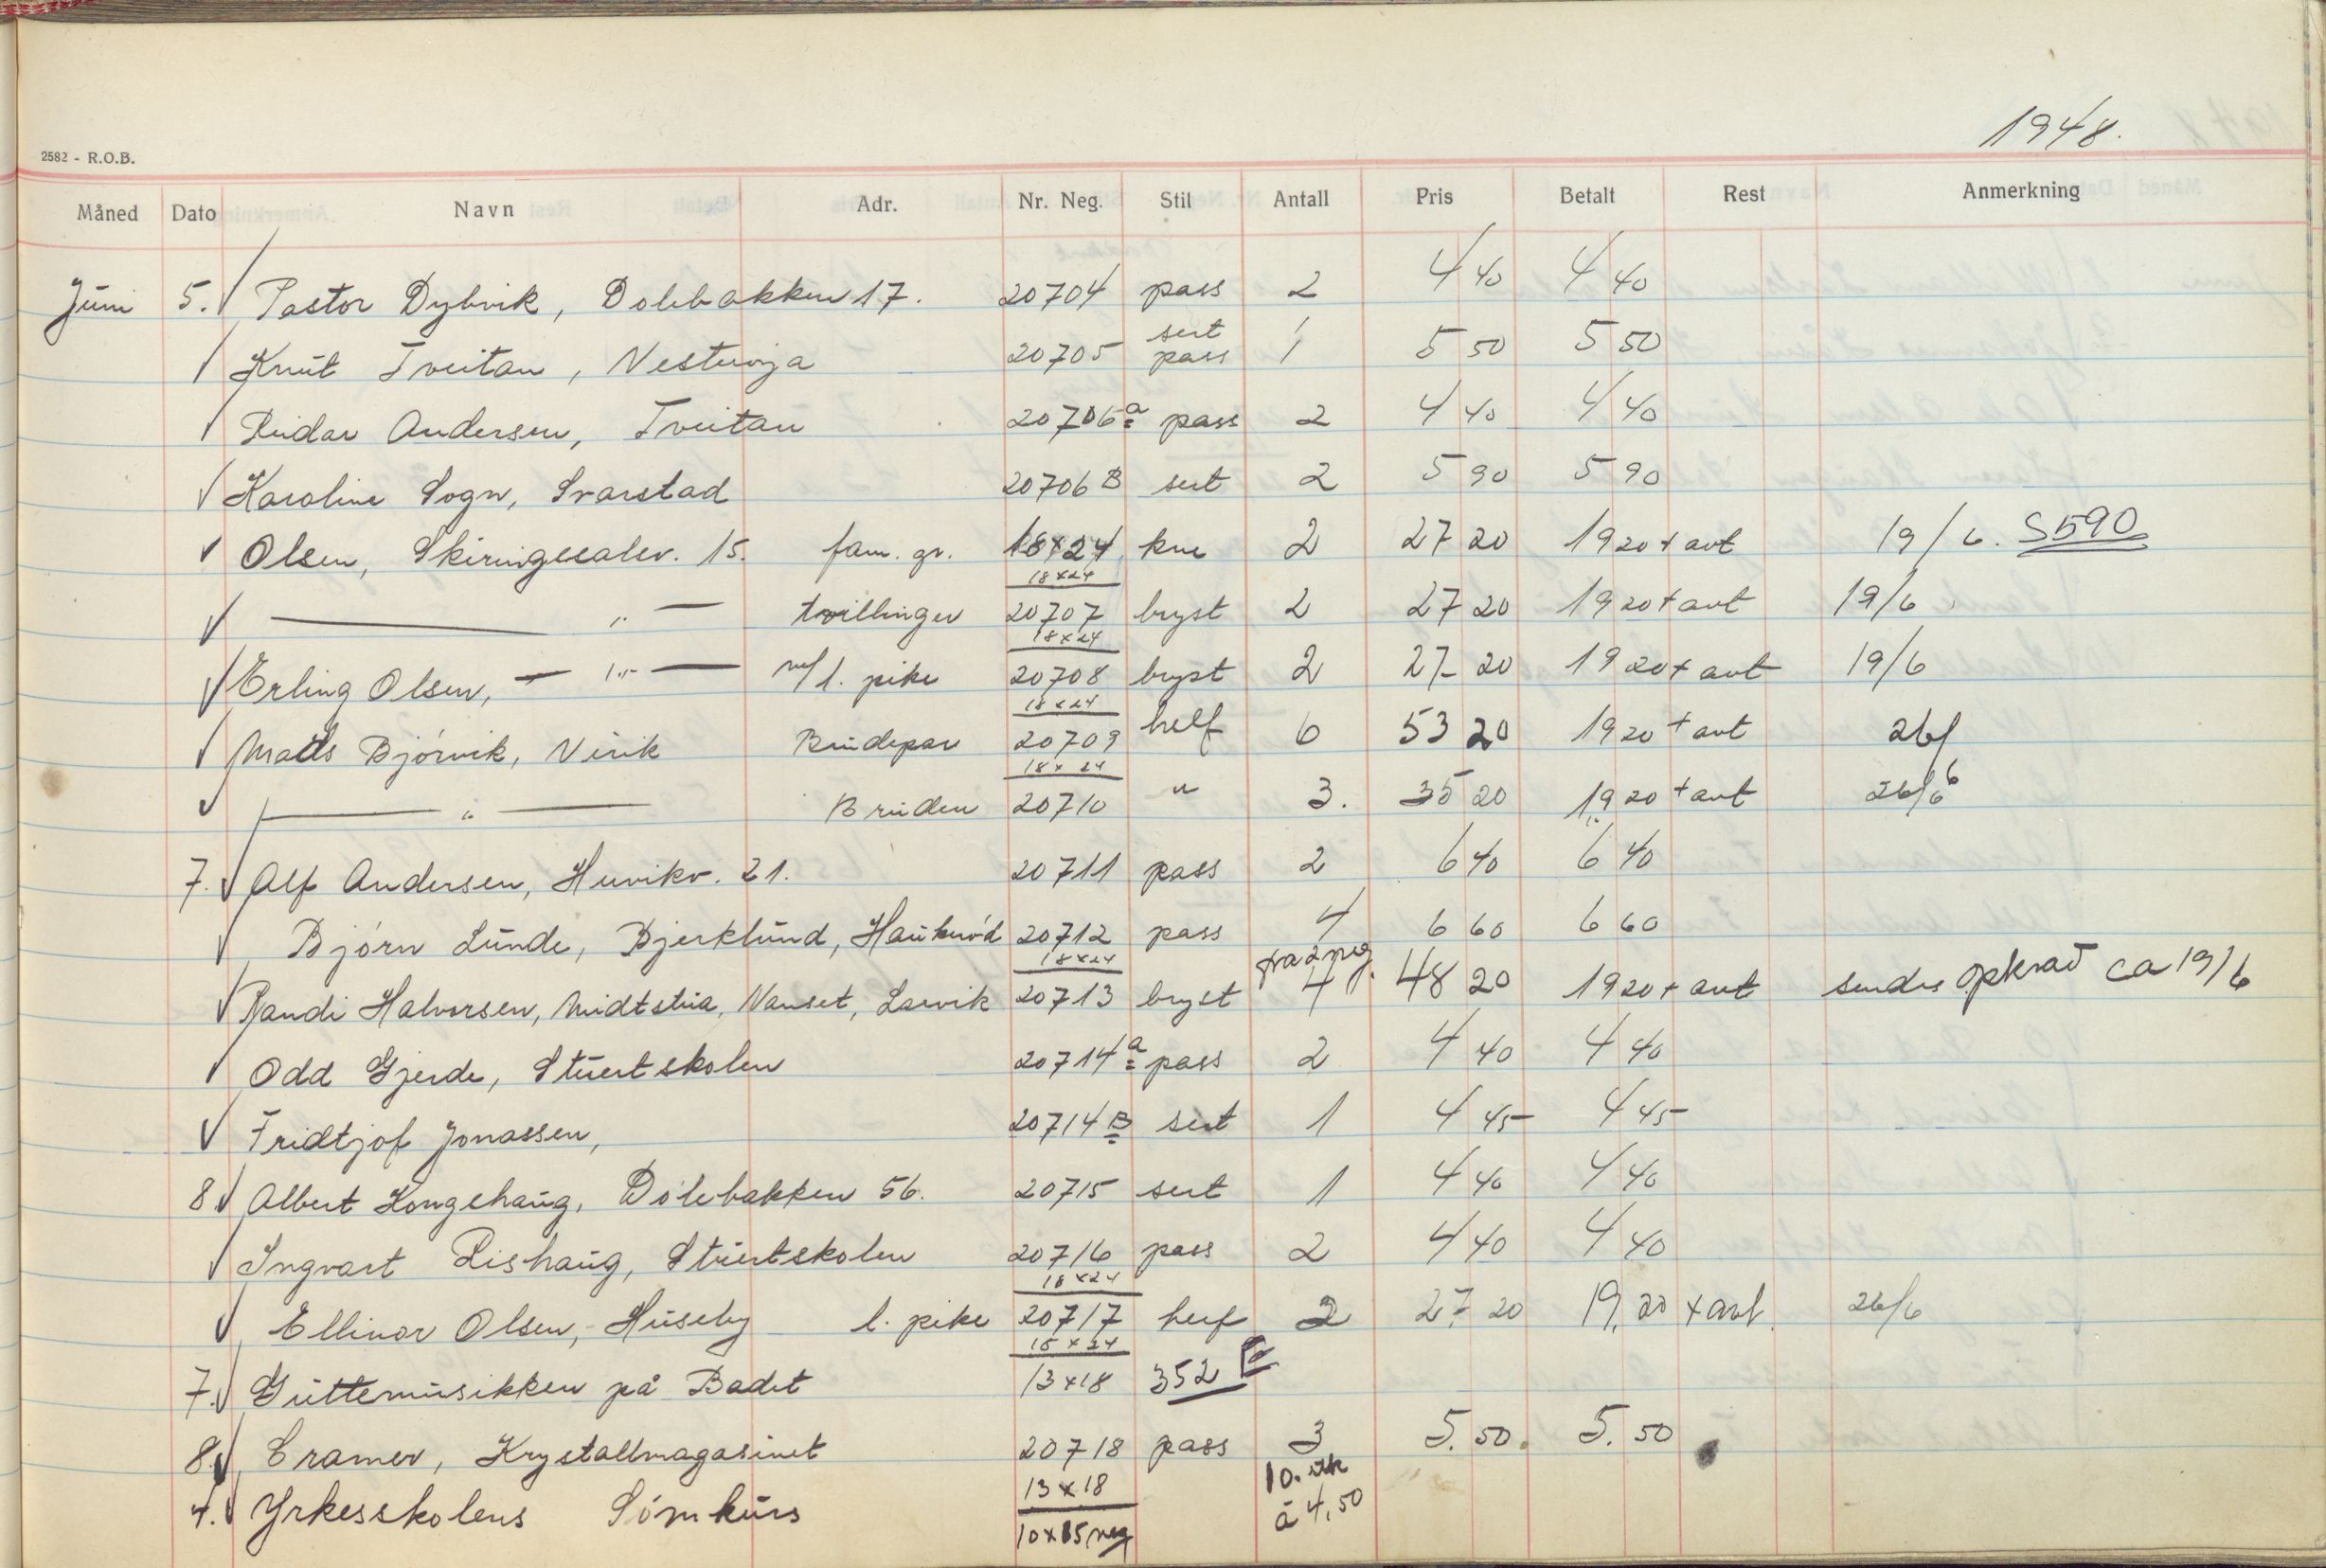 1948.
2582 - R.O.B.
Måned Dato Navn Adr. Nr. Neg. Stil Antall Pris Betalt Rest Anmerkning
Juni 5. √ Pastor Dybvik, Dølebakken 17. 20704 pass 2 4 40 4 40
√ Knut Tveitan, Vesterøya 20705 sert pass 1 5 50 5 50
√ Reidar Andersen, Tveitan 20706 a pass 2 4 40 4 40
√ Karoline Sogn, Svarstad 20706 B sert 2 5 90 5 90
√ Olsen, Skiringssalsv. 15. fam. gr. 18x24 kne 2 27 20 19 20 + avt 19/6. S590
18x24
√ — " — tvillinger 20707 bryst 2 27 20 19 20 + avt 19/6.
18x24
√ Erling Olsen, — " — m/l. pike 20708 bryst 2 27 20 19 20 + avt 19/6
18x24
√ Mads Bjørvik, Virik Brudepar 20709 helf 6 53 20 19 20 + avt 26/
18x24
√ — " — Bruden 20710 " 3. 35 20 19 20 + avt 26/6
7. √ Alf Andersen, Huvikv. 21. 20711 pass 2 6 40 6 40
√ Bjørn Lunde, Bjerklund, Haukerød 20712 pass 4 6 60 6 60
18x24 fra 2 neg.
√ Randi Halvorsen, Midtstua, Nanset, Larvik 20713 bryst 4 48 20 19 20 + avt sendes opkrav ca 19/6
√ Odd Gjerde, Stuertskolen 20714 a pass 2 4 40 4 40
√ Fridtjof Jonassen, 20714 B sert 1 4 45 4 45
8. √ Albert Kongehaug, Dølebakken 56. 20715 sert 1 4 40 4 40
√ Ingvart Rishaug, Stuertskolen 20716 pass 2 4 40 4 40
18x24
√ Ellinor Olsen, Huseby l. pike 20717 helf 2 27 20 19,20 + avt. 26/6
18x24
7. √ Guttemusikken på Badet 13x18 352
8. √ Cramer, Krystallmagasinet 20718 pass 3 5.50. 5.50
13x18 10. stk
4. √ Yrkesskolens Sømkurs à 4,50
10x15 neg